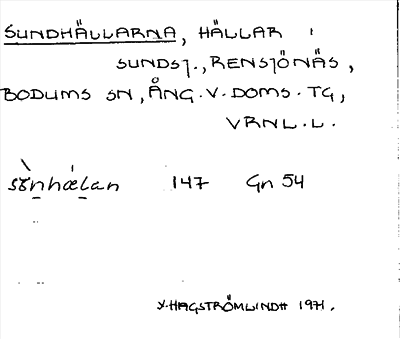 SUNDHÄLLARNA, HÄLLAR I
SUNDSJ., RENSJÖNÄS,
BODUMS SN, ÅNG. V. DOMS. TG,
VRNL. L.
sɤ̀nhǽlan 147 Gn 54
Y. HAGSTRÖMLINDH 1971.